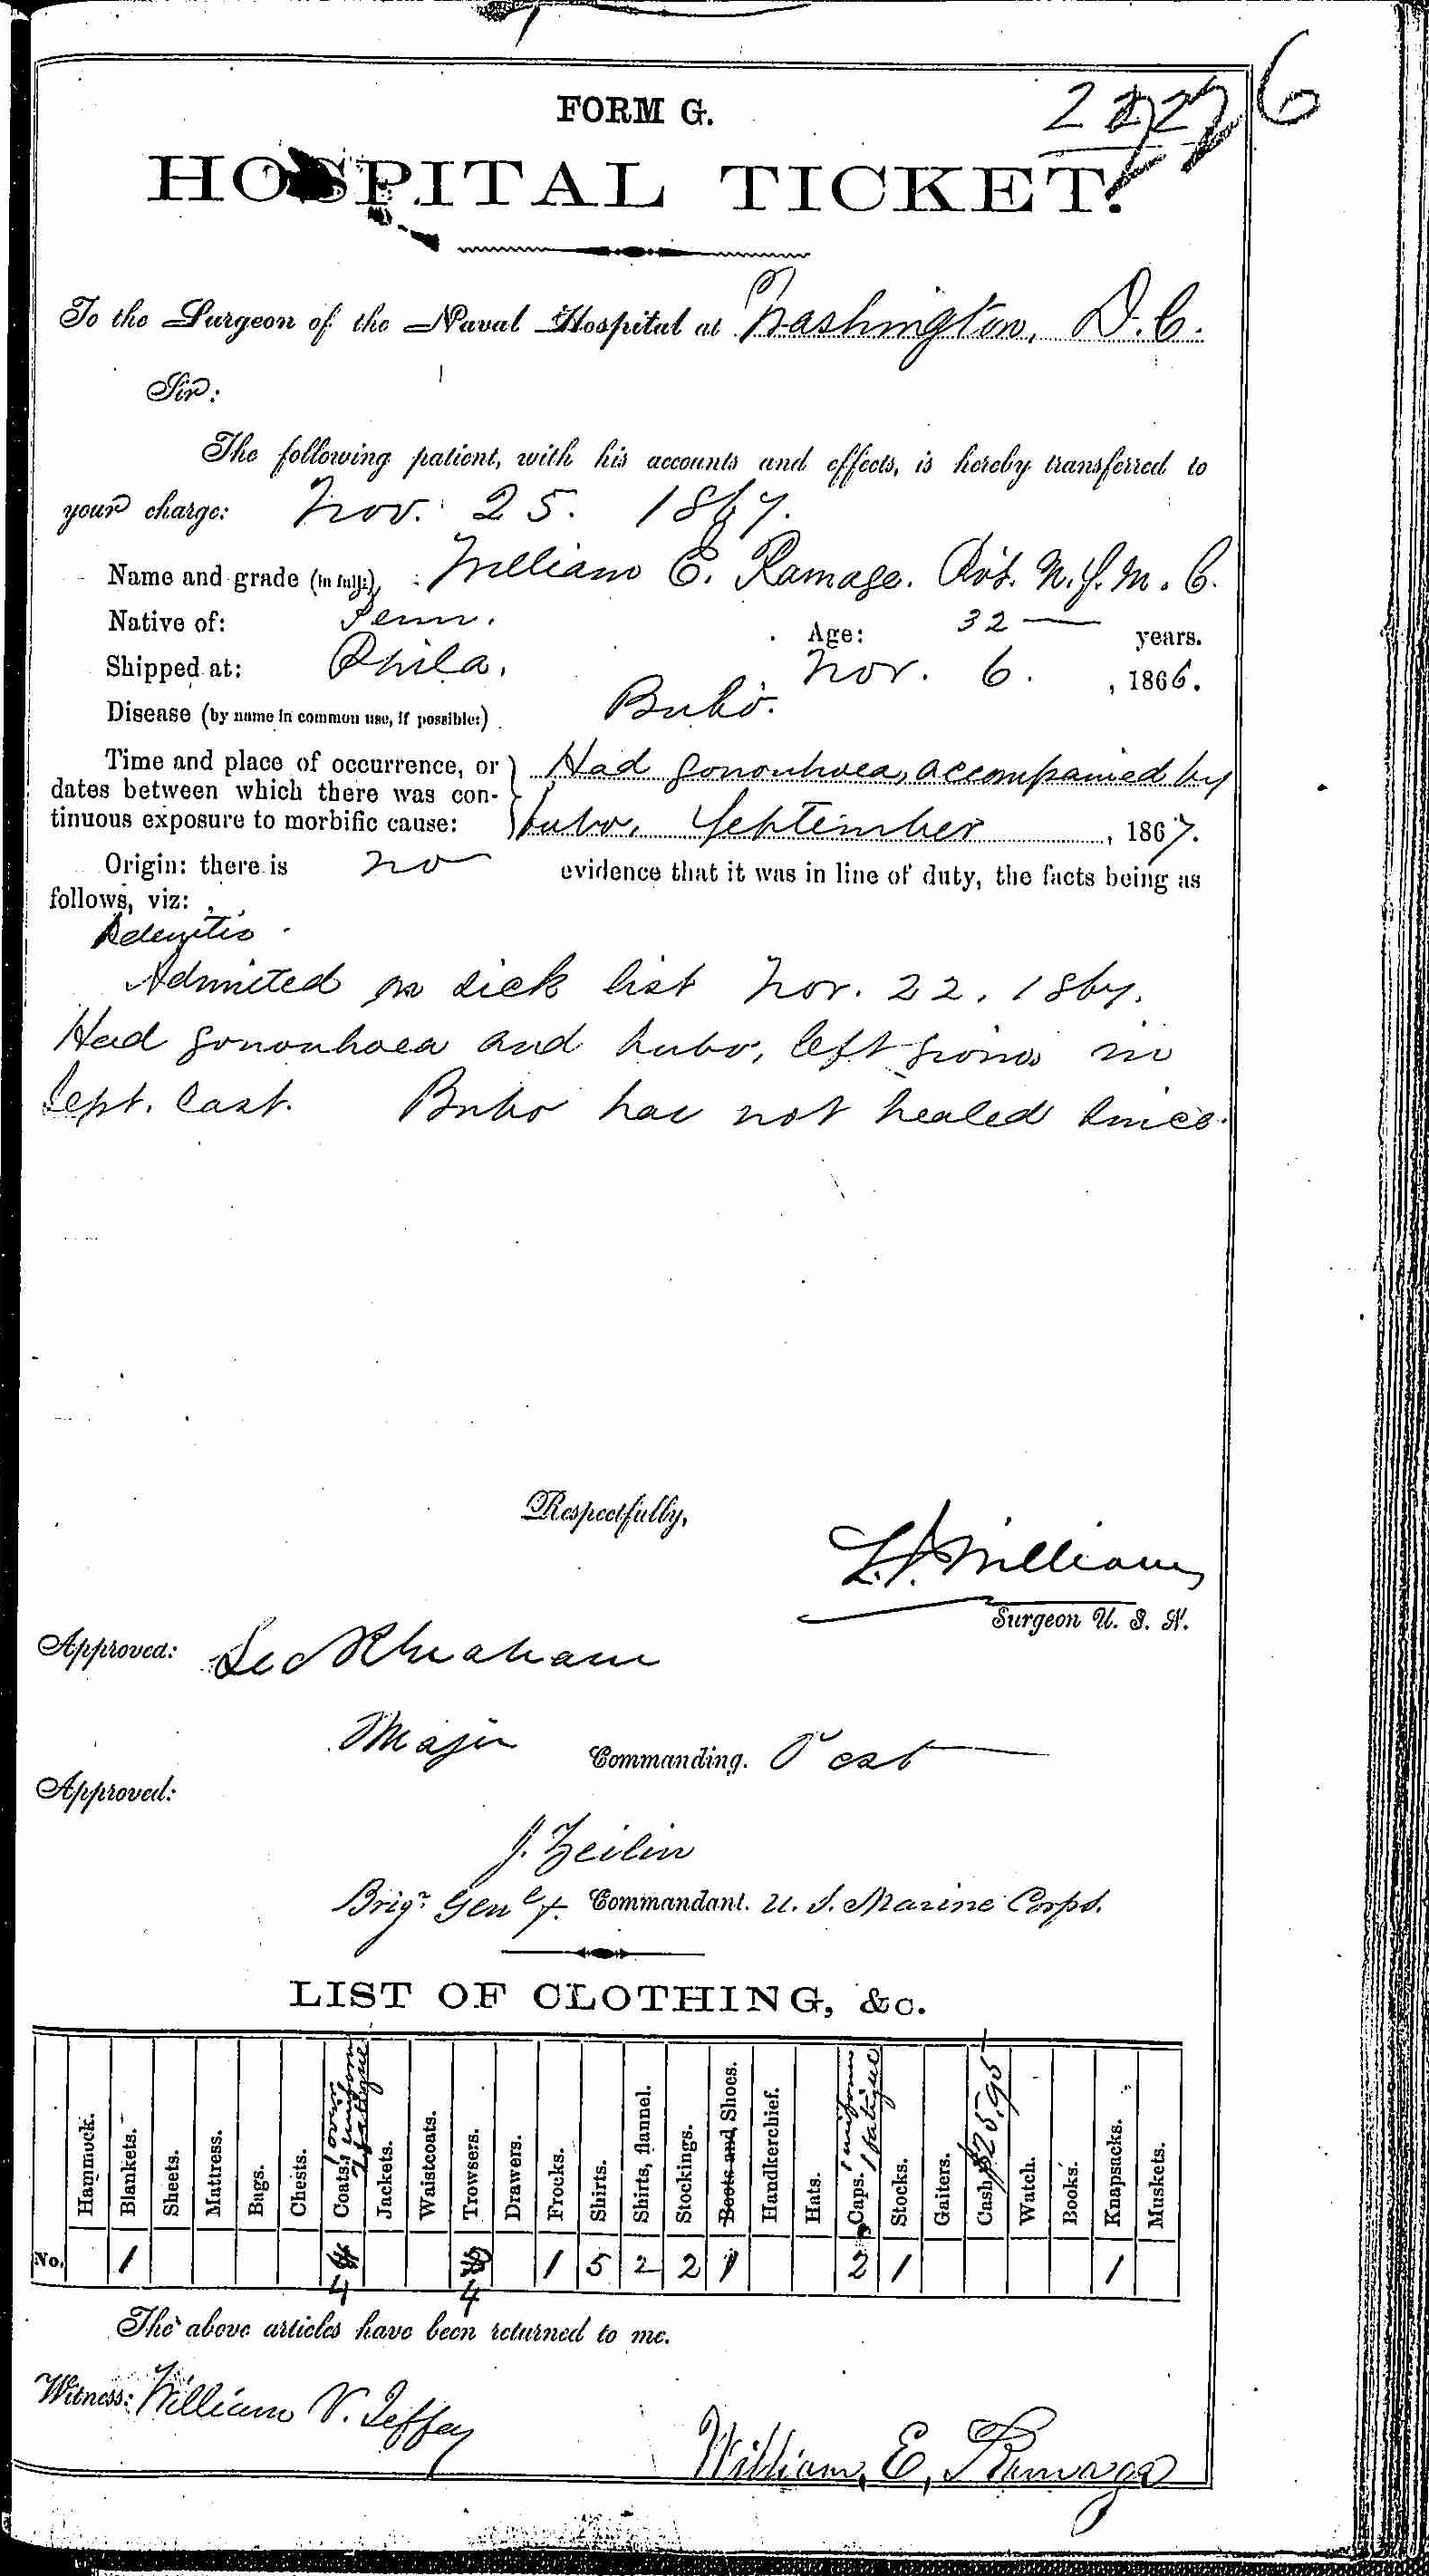 6
FORM G.
HOSPITAL TICKET.
To the Surgeon of the Naval Hospital at Washington, D.C.
Sir:
The following patient, with his accounts and effects, is hereby transferred to
your charge: Nov. 25. 1867.
Name and grade (in full;) William E. Ramage. Pvt. U.S.M.C.
Native of: Penn. Age: 32 years.
Shipped at: Phila. Nov. 6. , 1866.
Disease (by name in common use, if possible:) Bubo.
Time and place of occurrence, or Had gonorrhoea, accompanied by
dates between which there was con-
tinuous exposure to morbific cause: bubo, September , 1867.
Origin: there is no evidence that it was in line of duty, the facts being as
follows, viz:
Adenitis
Admitted on sick list Nov. 22. 1867.
Had gonorrhoea and bubo, left groin in
Sept. last. Bubo has not healed since.
Respectfully,
Williams
Surgeon U. S. N.
Approved:
Major Commanding. Post
Approved:
J. Zeilin
Brigr. Genl & Commandant. U. S. Marine Corps.
LIST OF CLOTHING, &c.
Hammock. Blankets. Sheets. Mattress. Bags. Chests. Coats. 1 over 1 uniform 2 fatigue Jackets. Waistcoats. Trowsers. Drawers. Frocks. Shirts. Shirts, flannel. Stockings. Boots and Shoes. Handkerchief. Hats. Caps. 1 uniform 1 fatigue Stocks. Gaiters. Cash, $25.95 Watch. Books. Knapsacks. Muskets.
No. 1 4 4 1 5 2 2 1 2 1 1
The above articles have been returned to me.
Witness: William V. Jeffey
William, E, Ramage